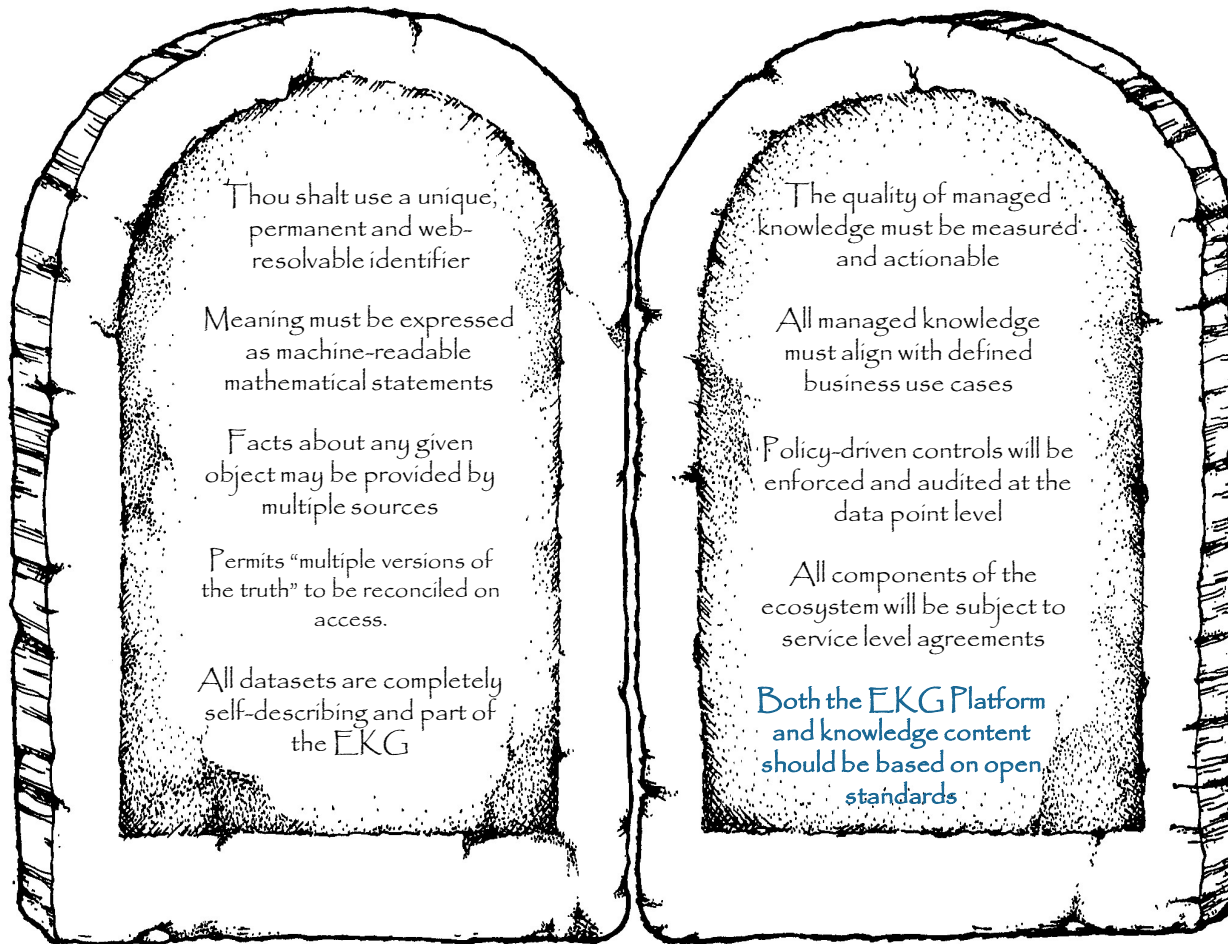 Thou shalt use a unique,
permanent and web-
resolvable identifier
Meaning must be expressed
as machine-readable
mathematical statements
Facts about any given
object may be provided by
multiple sources
Permits “multiple versions of
the truth” to be reconciled on
access.
All datasets are completely
self-describing and part of
the EKG
The quality of managed
knowledge must be measured
and actionable
All managed knowledge
must align with defined
business use cases
Policy-driven controls will be
enforced and audited at the
data point level
All components of the
ecosystem will be subject to
service level agreements
Both the EKG Platform
and knowledge content
should be based on open
standards